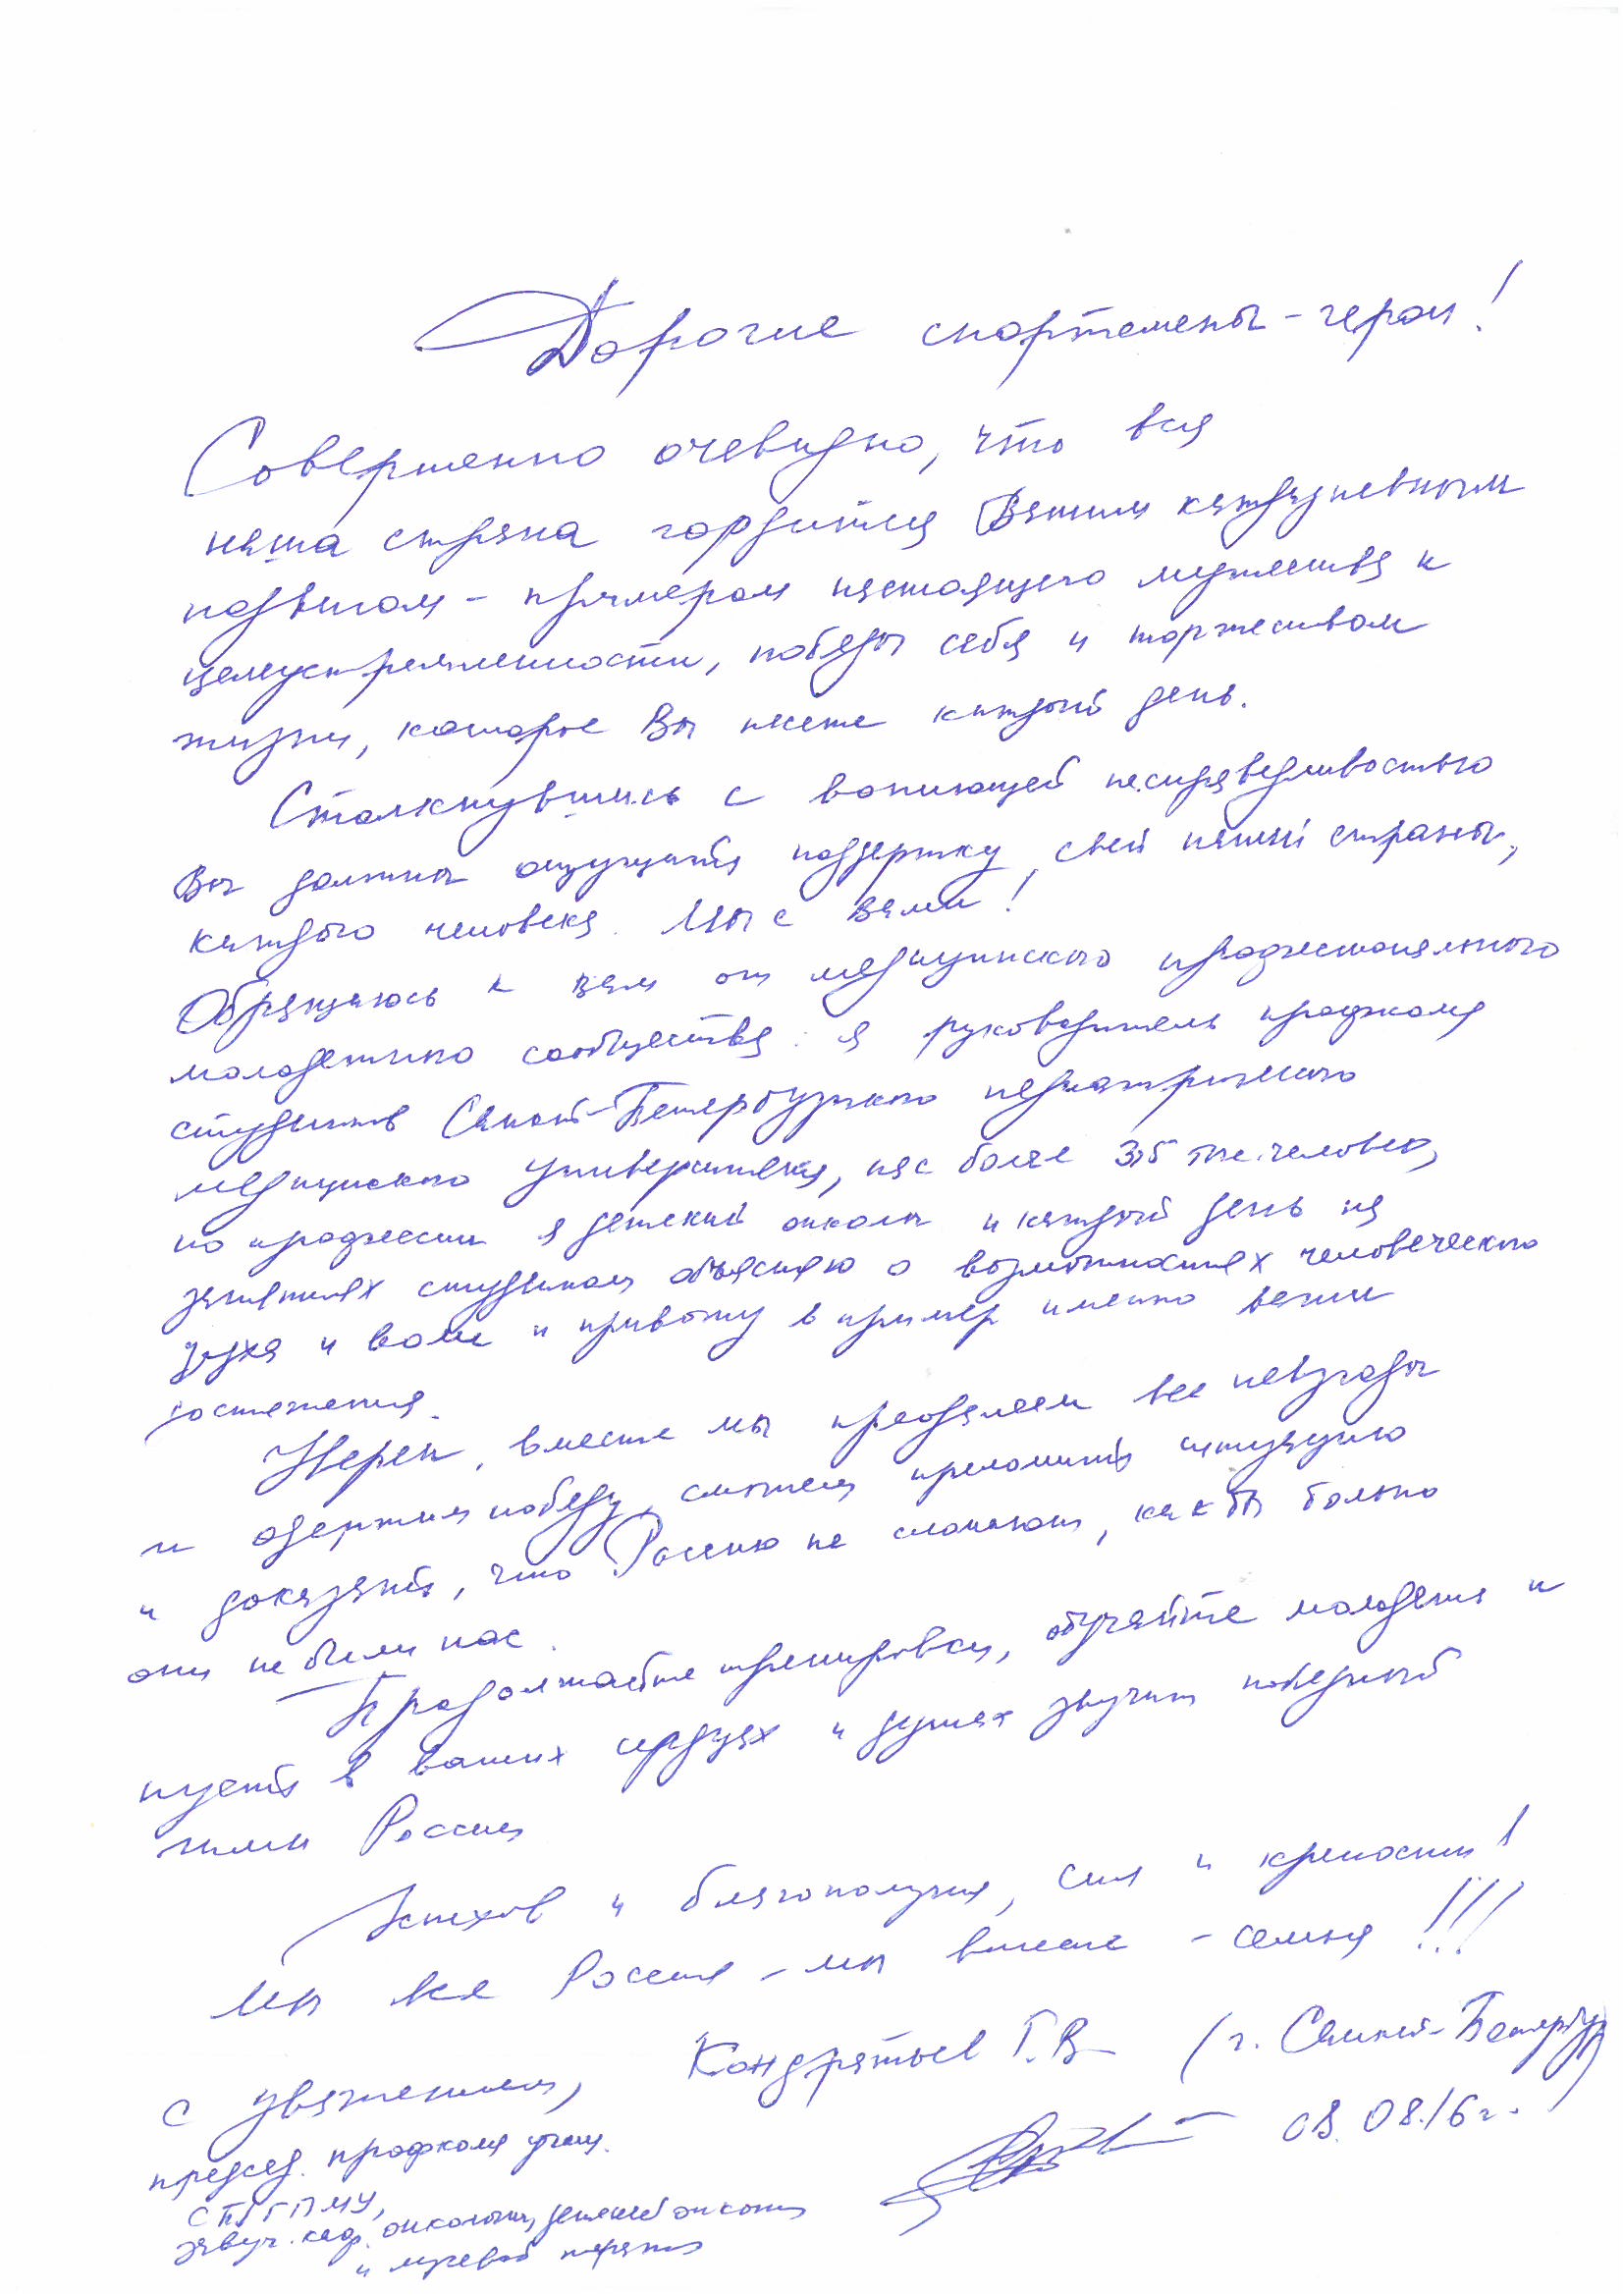 Дорогие спортсмены-герои!
Совершенно очевидно, что вся
наша страна гордится Вашим каждодневным
подвигом - примером настоящего мужества и
целеустремленности, победы себя и торжеством
жизни, которое Вы несете каждый день.
Столкнувшись с вопиющей несправедливостью
Вы должны ощущать поддержку всей нашей страны,
каждого человека. Мы с вами!
Обращаюсь к вам от медицинского профессионального
молодежного сообщества: я руководитель профкома
студентов Санкт-Петербургского педиатрического
медицинского Университета, нас более 3,5 тыс. человек,
по профессии я детский онколог и каждый день на
занятиях студентам объясняю о возможностях человеческого
духа и воли и привожу в пример именно ваши
достижения.
Уверен, вместе мы преодолеем все невзгоды
и одержим победу, сможем преломить ситуацию
и доказать, что Россию не сломают, как бы больно
они не били нас.
Продолжайте тренировки, обучайте молодежь и
пусть в ваших сердцах и душах звучит победный
гимн России
Успехов и благополучия, сил и крепости!
Мы все Россия - мы вместе - семья!!!
С уважением, Кондратьев Г.В. (г. Санкт-Петербург)
председ. профкома
СПбГПМУ, 08.08.16г.
завуч. каф. онкологии, детской онкологии
и лучевой терапии